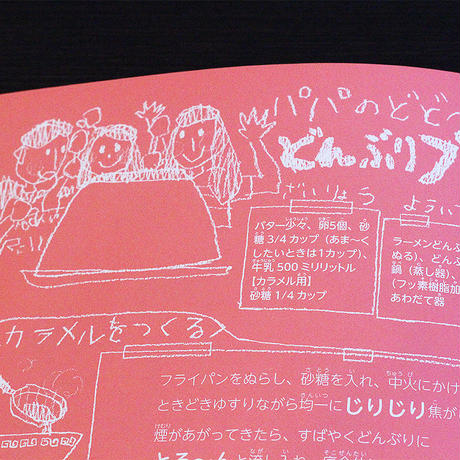 パパのどど
どんぶりプ
ざいりょう
バター少々、卵5個、砂
糖 3/4 カップ（あま〜く
したいときは1カップ）、
牛乳 500 ミリリットル
【カラメル用】
砂糖 1/4 カップ
ようい
ラーメンどんぶ
ぬる）、どんぶ
鍋（蒸し器）、
（フッ素樹脂加
あわだて器
カラメルをつくる
フライパンをぬらし、砂糖を入れ、中火にかけ
ときどきゆすりながら均一にじりじり焦が
煙があがってきたら、すばやくどんぶりに